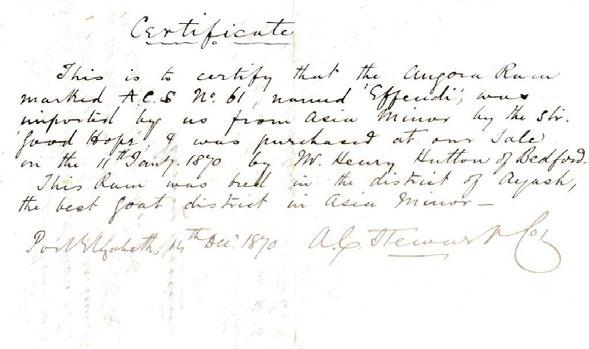 Certificate
This is to certify that the Angora Ram
marked A.C.S No. 61, named 'Effendi', was
imported by us from Asia Minor by the Str.
'Good Hope', & was purchased at our Sale
on the 11th Jany. 1870 by Mr. Henry Hutton of Bedford.
This Ram was bred in the district of Ayash,
the best Goat district in Asia Minor —
Port Elizabeth, 14th Dec. 1870 A.C. Stewart & Co.